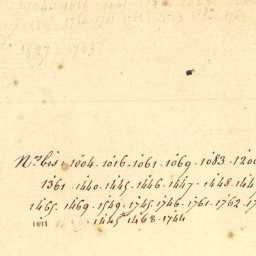 Nos bis. 1004. 1016. 1061. 1069. 1083. 120
1361. 1440. 1445. 1446. 1447. 1448. 144
1465. 1469. 1549. 1745. 1746. 1761. 1762. 17
1445 1468. 1744